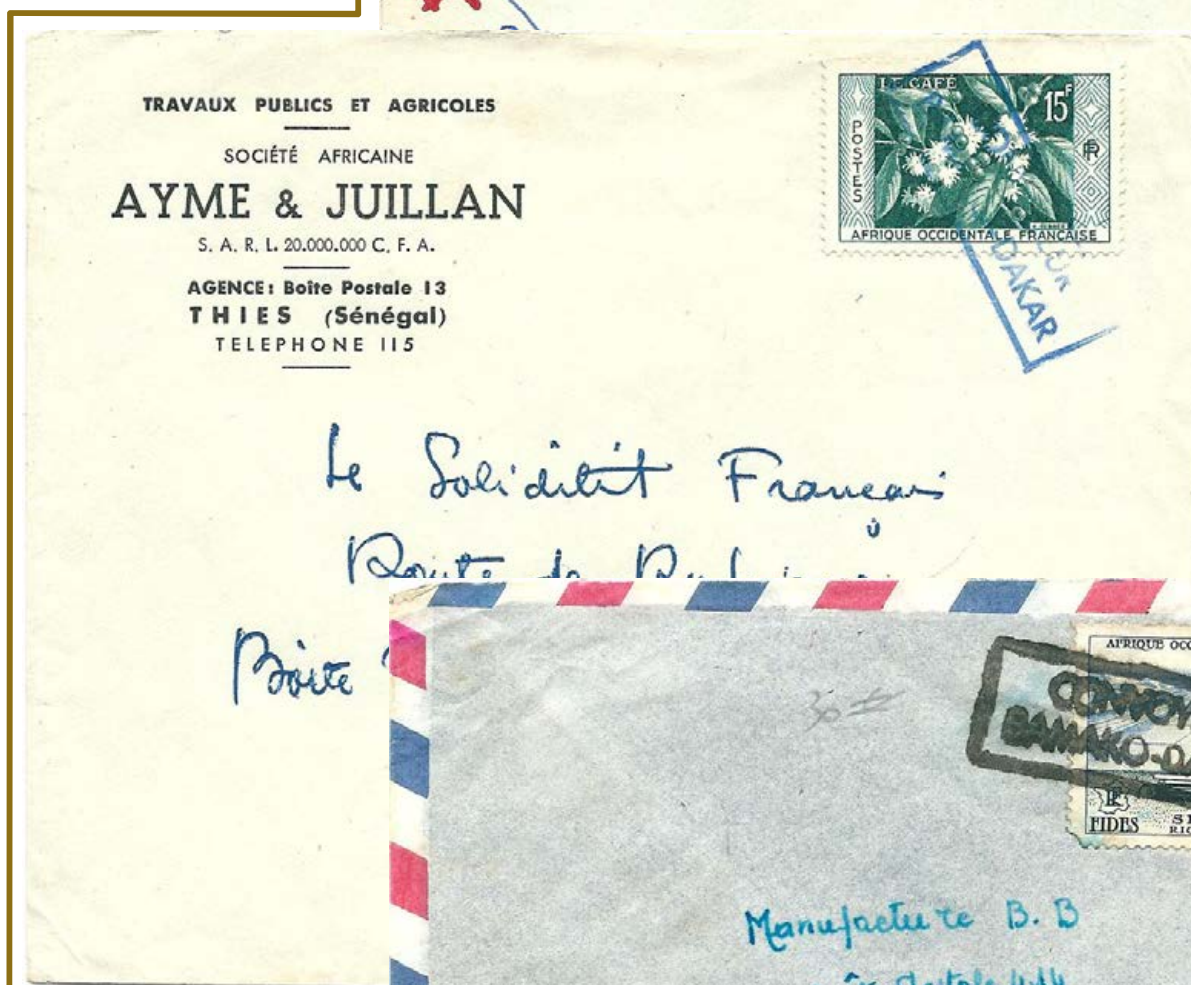 TRAVAUX PUBLICS ET AGRICOLES
SOCIÉTÉ AFRICAINE
AYME & JUILLAN
S. A. R. L. 20.000.000 C. F. A.
AGENCE: Boîte Postale 13
THIES (Sénégal)
TELEPHONE 115
LE CAFÉ
15F
POSTES
RF
AFRIQUE OCCIDENTALE FRANÇAISE
DAKAR
Le Soliditit Français
Route de
Boite
AFRIQUE OCC
CONVOY
BAMAKO-DA
FIDES
Manufacture B. B
Postale 414